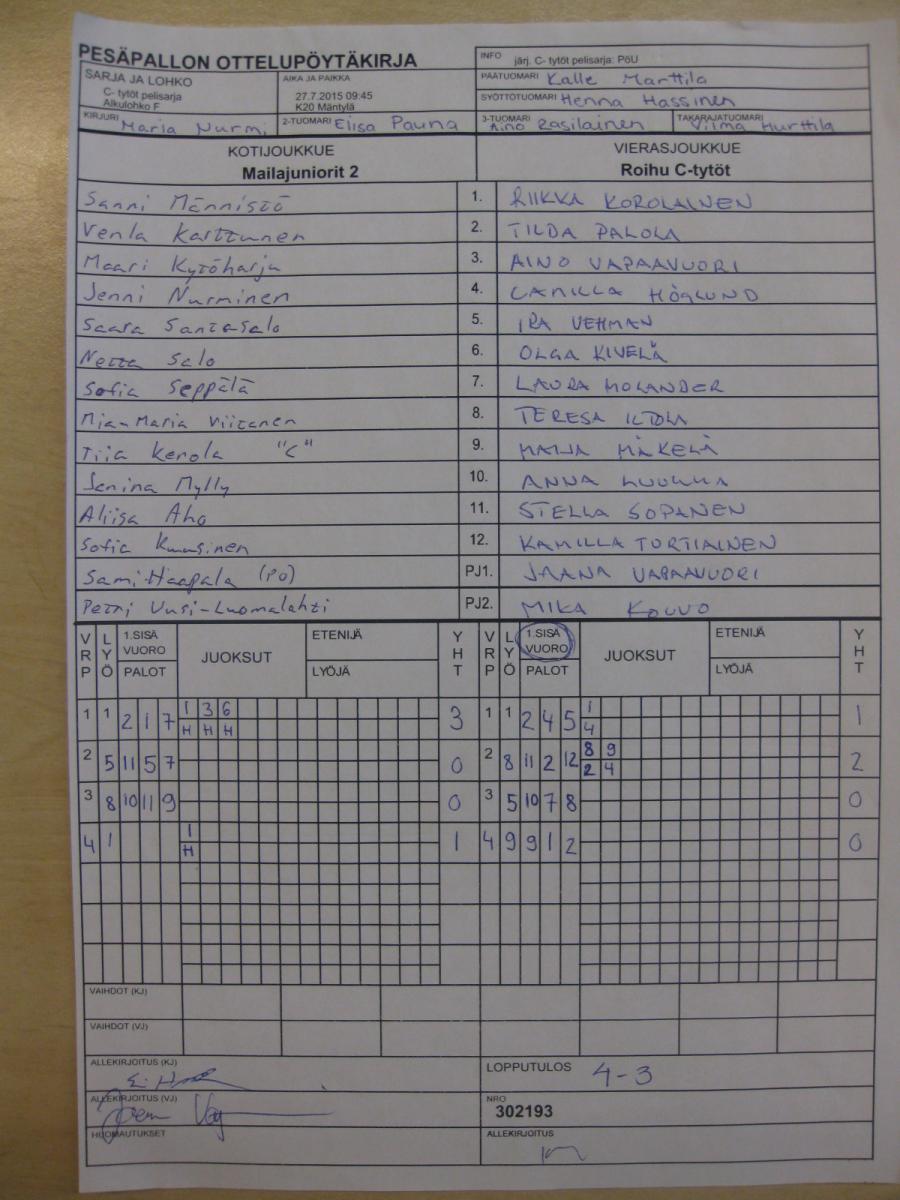 PESÄPALLON OTTELUPÖYTÄKIRJA
INFO järj. C- tytöt pelisarja: PöU
SARJA JA LOHKO
C- tytöt pelisarja
Alkulohko F
AIKA JA PAIKKA
27.7.2015 09:45
K20 Mäntylä
PÄÄTUOMARI Kalle Marttila
SYÖTTÖTUOMARI Henna Hassinen
KIRJURI Maria Nurmi 2-TUOMARI Elisa Pauna 3-TUOMARI Aino Rasilainen TAKARAJATUOMARI Vilma Murttila
KOTIJOUKKUE VIERASJOUKKUE
Mailajuniorit 2 Roihu C-tytöt
Sanni Männistö 1. RIIKKA KOROLAINEN
Venla Karttunen 2. TILDA PALOLA
Maari Kytöharju 3. AINO VAPAAVUORI
Jenni Nurminen 4. CAMILLA HÖGLUND
Saara Santasalo 5. IRA VEHMAN
Netta Salo 6. OLGA KIVELÄ
Sofia Seppälä 7. LAURA MOLANDER
Mia-Maria Viitanen 8. TERESA ILTOLA
Tiia Kerola "C" 9. MAIJA MÄKELÄ
Jenina Mylly 10. ANNA
Aliisa Aho 11. STELLA SOPANEN
Sofia Kuusinen 12. KAMILLA TURTIAINEN
Sami Haapala (PO) PJ1. JAANA VAPAAVUORI
Petri Uusi-Luomalahti PJ2. MIKA KOUVO
VRP LYÖ 1.SISÄ VUORO PALOT JUOKSUT ETENIJÄ LYÖJÄ YHT VRP LYÖ 1.SISÄ VUORO PALOT JUOKSUT ETENIJÄ LYÖJÄ YHT
1 1 2 1 7 1 3 6 3 1 1 2 4 5 1 1
H H H 4
2 5 11 5 7 0 2 8 11 2 12 8 9 2
2 4
3 8 10 11 9 0 3 5 10 7 8 0
4 1 1 1 4 9 9 1 2 0
H
VAIHDOT (KJ)
VAIHDOT (VJ)
ALLEKIRJOITUS (KJ) LOPPUTULOS 4-3
ALLEKIRJOITUS (VJ) NRO
302193
HUOMAUTUKSET ALLEKIRJOITUS